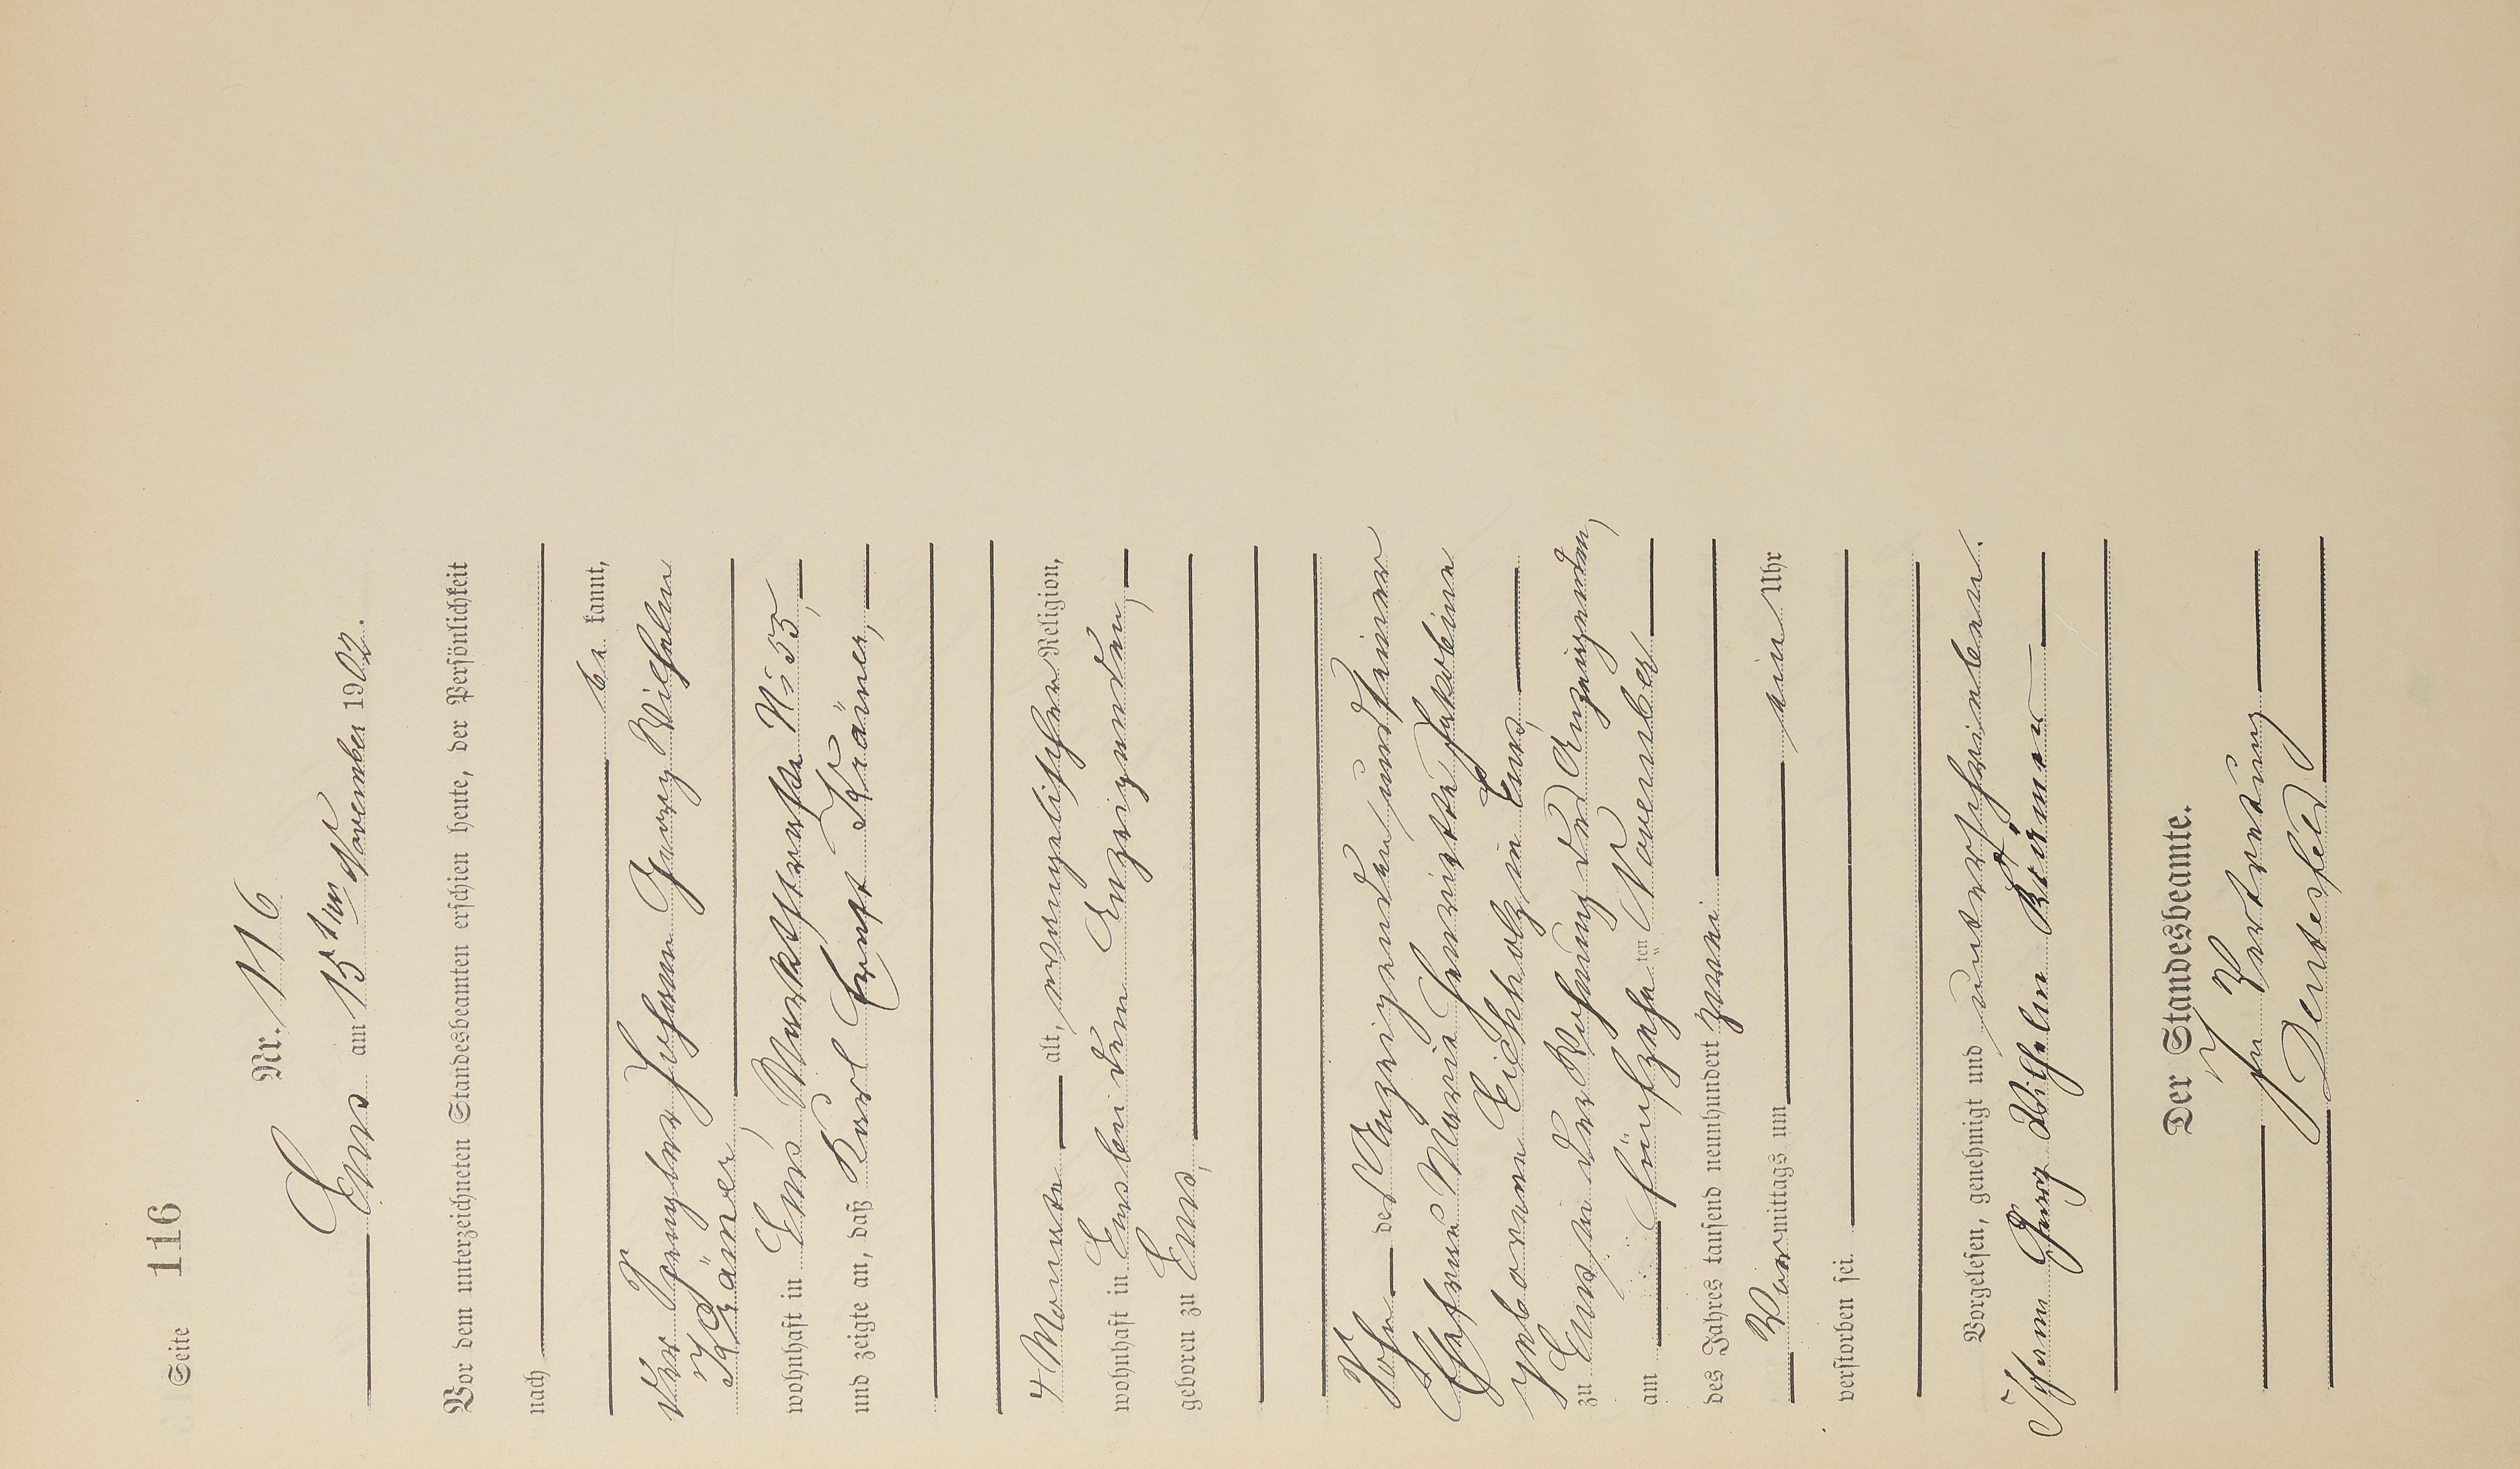 Seite 116
Nr. 116
Ems am 15ten November 1902.
Vor dem unterzeichneten Standesbeamten erschien heute, der Persönlichkeit
nach
be kannt,
der Spengler Johann Georg Wilhelm
Kräner
wohnhaft in Ems, Marktstraße No 53,
und zeigte an, daß Karl Ernst Kräner,
4 Monate alt, evangelischer Religion,
wohnhaft in Ems bei dem Anzeigenden,
geboren zu Ems,
Sohn des Anzeigenden und seiner
Ehefrau Maria Henriette Jakobine
geborene Eichholz in Ems,
zu Ems, in der Wohnung des Anzeigenden,
am fünfzehn ten November
des Jahres tausend neunhundert zwei
Vor mittags um ein Uhr
verstorben sei.
Vorgelesen, genehmigt und unterschrieben.
Johann Georg Wilhelm Kräner
Der Standesbeamte.
In Vertretung